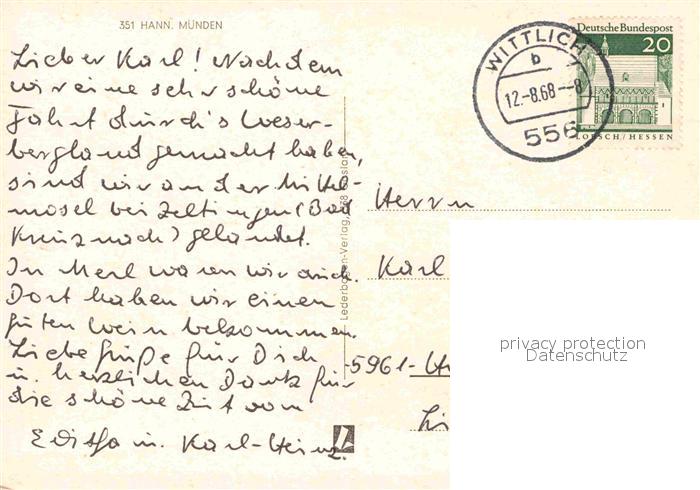 351 HANN. MÜNDEN
Lieber Karl! Nachdem
wir eine sehr schöne
Fahrt durch's Weser-
bergland gemacht haben,
sind wir an der Mittel-
mosel bei Zeltingen (Bad
Kreuznach) gelandet.
In Merl waren wir auch.
Dort haben wir einen
guten Wein bekommen.
Liebe Grüße für Dich
u. herzlichen Dank für
die schöne Zeit von
Editha u. Karl-Heinz.
Lederbogen-Verlag,
WITTLICH
b
12.-8.68--8
556
Deutsche Bundespost
20
LORSCH/HESSEN
Herrn
Karl
5961-
privacy protection
Datenschutz